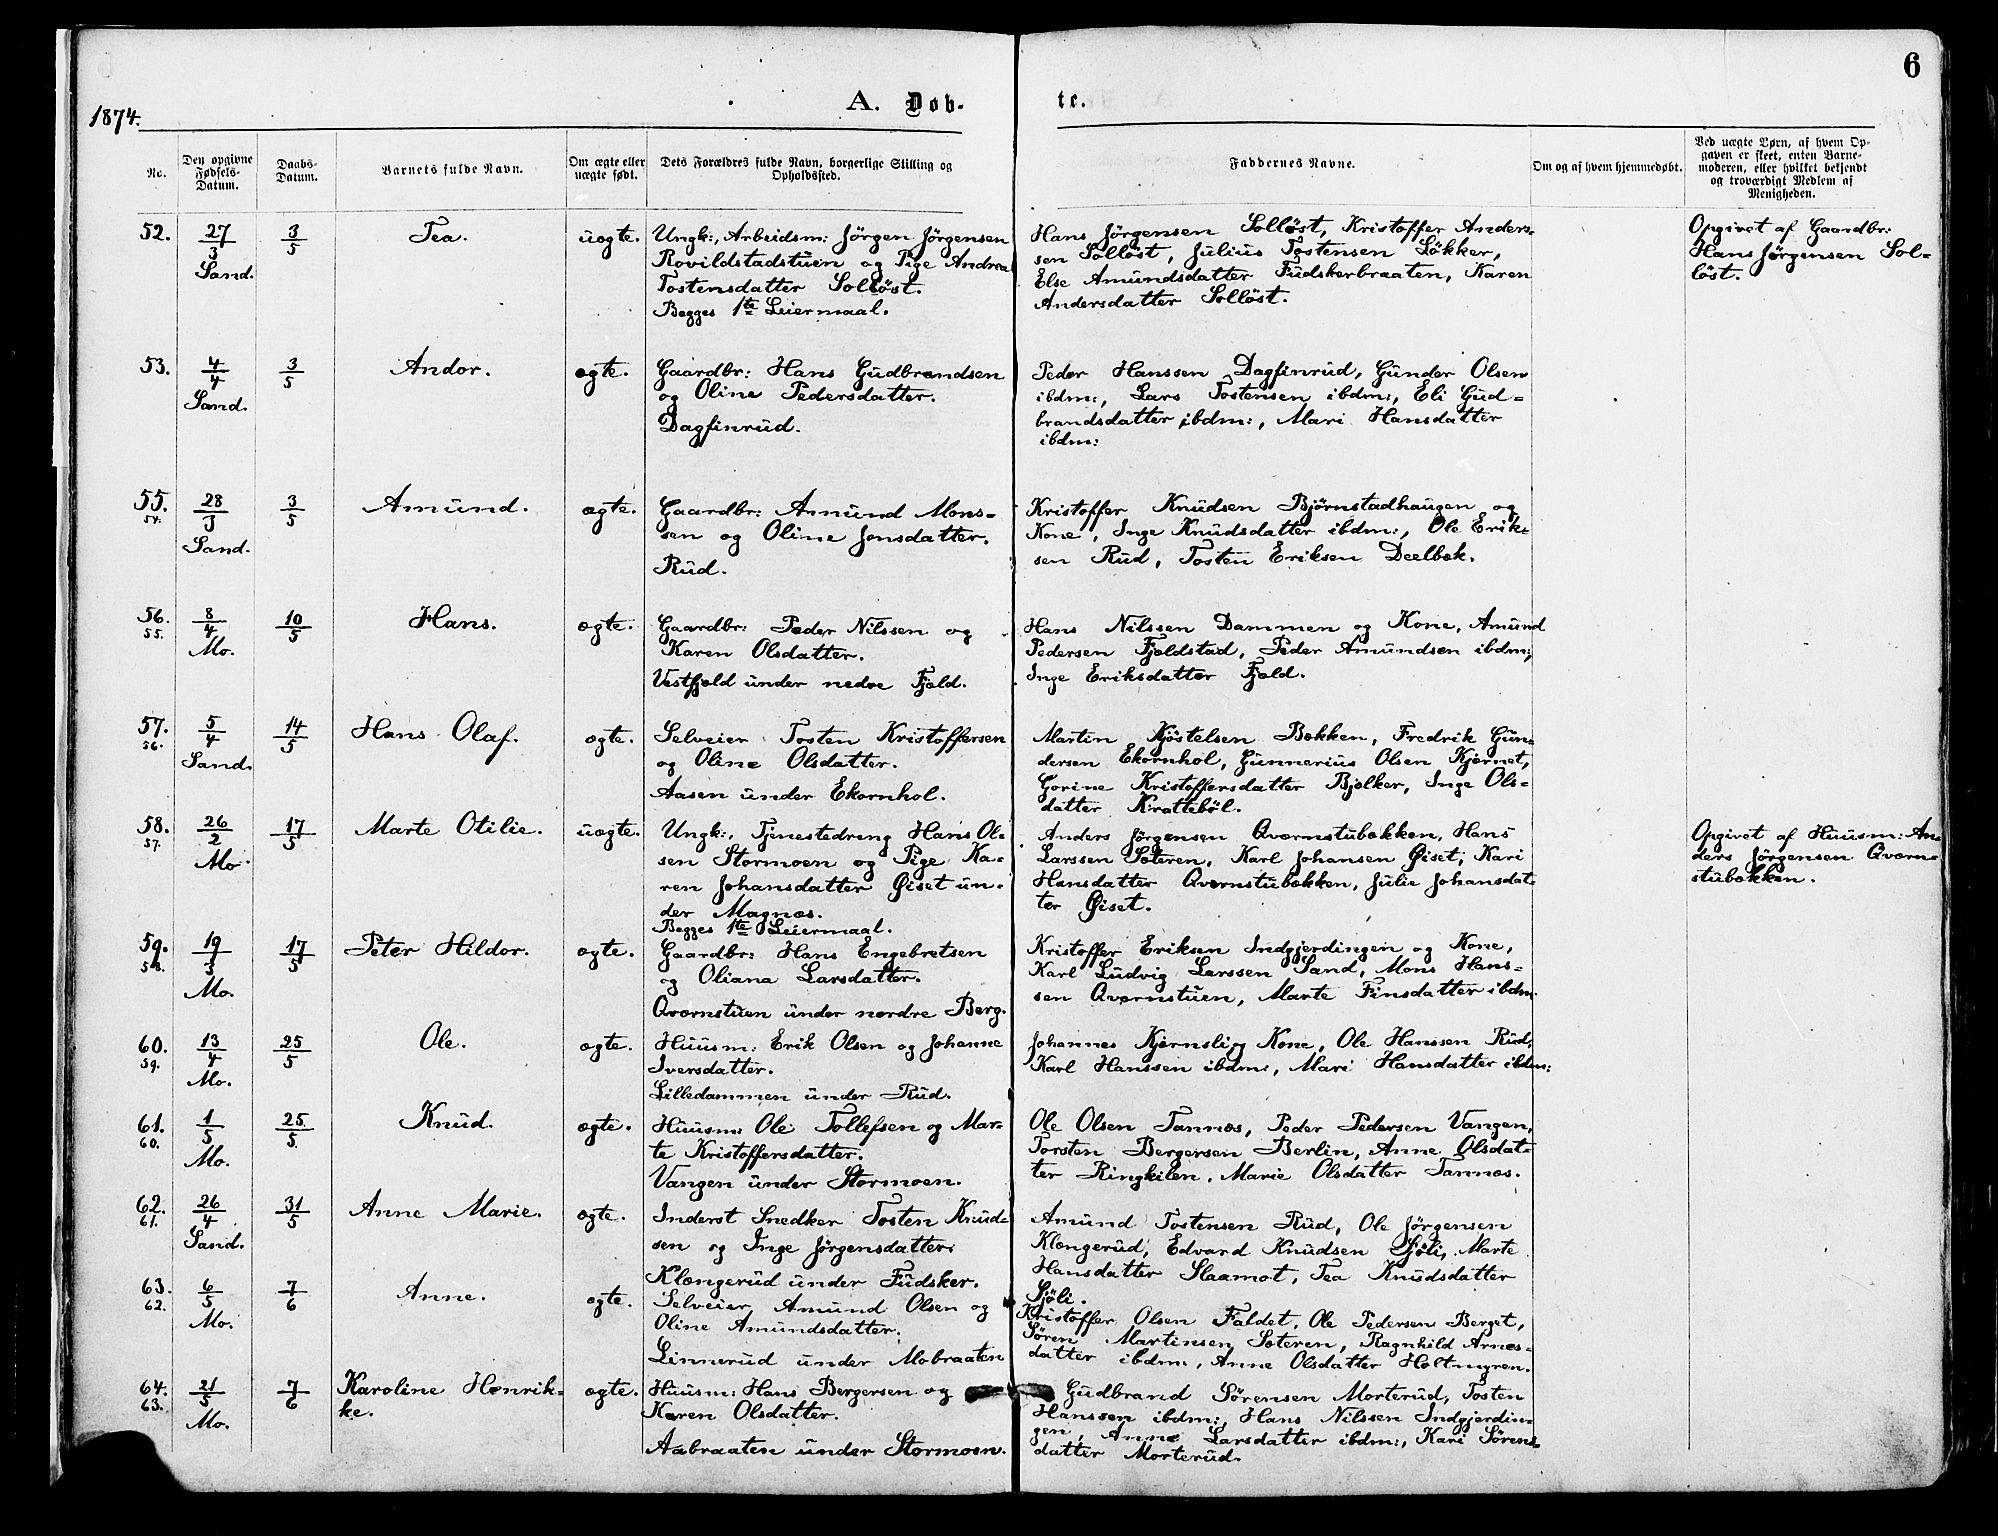 6
1874.
A. Døb-
te.
No.
Den opgivne Fødsels-Datum.
Daabs-Datum.
Barnets fulde Navn.
Om ægte eller uægte født.
Dets Forældres fulde Navn, borgerlige Stilling og Opholdssted.
Faddernes Navne.
Om og af hvem hjemmedøbt.
Ved uægte Børn, af hvem Op-
gaven er skeet, enten Barne-
moderen, eller hvilket bekjendt
og troværdigt Medlem af
Menigheden.
52. 27/3 Sand. 3/5 Tea. uægte.
Ungk:, Arbeidsm: Jørgen Jørgensen
Rovildstadstuen og Pige Andrea
Tostensdatter Solløst.
Begges 1te Leiermaal.
Hans Jørgensen Solløst, Kristoffer Ander-
sen Solløst, Julius Tostensen Løkker,
Else Amundsdatter Fudskerbraaten, Karen
Andersdatter Solløst.
Opgivet af Gaardbr:
Hans Jørgensen Sol-
løst.
53. 4/4 Sand. 3/5 Andor. ægte.
Gaardbr: Hans Gudbrandsen
og Oline Pedersdatter.
Dagfinrud.
Peder Hanssen Dagfinrud, Gunder Olsen
ibdm:, Lars Tostensen ibdm:, Eli Gud-
brandsdatter ibdm:, Mari Hansdatter
ibdm:
55. 54. 28/3 Sand. 3/5 Amund. ægte.
Gaardbr: Amund Mons-
sen og Oline Jonsdatter.
Rud.
Kristoffer Knudsen Bjørnstadhaugen og
Kone, Inge Knudsdatter ibdm:, Ole Erik-
sen Rud, Tosten Eriksen Deelbæk.
56. 55. 8/4 Mo. 10/5 Hans. ægte.
Gaardbr: Peder Nilssen og
Karen Olsdatter.
Vestfjeld under nedre Fjeld.
Hans Nilssen Dammen og Kone, Amund
Pedersen Fjeldstad, Peder Amundsen ibdm:,
Inge Eriksdatter Fjeld.
57. 56. 5/4 Sand. 14/5 Hans Olaf. ægte.
Selveier Tosten Kristoffersen
og Oline Olsdatter.
Aasen under Ekornhol.
Martin Kjøstelsen Bækken, Fredrik Gun-
dersen Ekornhol, Gunnerius Olsen Kjernet,
Gorine Kristoffersdatter Bjølker, Inge Ols-
datter Krattebøl.
58. 57. 26/2 Mo. 17/5 Marte Otilie. uægte.
Ungk:, Tjenestedreng Hans Ol-
sen Stormoen og Pige Ka-
ren Johansdatter Øiset un-
der Magnæs.
Begges 1te Leiermaal.
Anders Jørgensen Qværnstubækken, Hans
Larssen Sæteren, Karl Johansen Øiset, Kari
Hansdatter Qværnstubækken, Julie Johansdat-
ter Øiset.
Opgivet af Huusm: An-
ders Jørgensen Qværn-
stubækken.
59. 58. 19/3 Mo. 17/5 Peter Hildor. ægte.
Gaardbr: Hans Engebretsen
og Oliana Larsdatter.
Qværnstuen under nordre Berg.
Kristoffer Eriksen Indgjerdingen og Kone,
Karl Ludvig Larssen Sand, Mons Hans-
sen Qværnstuen, Marte Finsdatter ibdm:
60. 59. 13/4 Mo. 25/5 Ole. ægte.
Huusm: Erik Olsen og Johanne
Iversdatter.
Lilledammen under Rud.
Johannes Kjernsli og Kone, Ole Hanssen Rud,
Karl Hanssen ibdm:, Mari Hansdatter ibdm:
61. 60. 1/5 Mo. 25/5. Knud. ægte.
Huusm: Ole Tollefsen og Mar-
te Kristoffersdatter.
Vangen under Stormoen.
Ole Olsen Tannæs, Peder Pedersen Vangen,
Torsten Bergersen Berlin, Anne Olsdat-
ter Ringkilen, Marie Olsdatter Tannæs.
62. 61. 26/4 Sand. 31/5 Anne Marie. ægte.
Inderst Snedker Tosten Knud-
sen og Inge Jørgensdatter.
Klængerud under Fudsker.
Amund Tostensen Rud, Ole Jørgensen
Klængerud, Edvard Knudsen Sjøli, Marte
Hansdatter Slaamot, Tea Knudsdatter
Sjøli.
63. 62. 6/5 Mo. 7/6 Anne. ægte.
Selveier Amund Olsen og
Oline Amundsdatter.
Linnerud under Mobraaten
Kristoffer Olsen Faldet, Ole Pedersen Berget,
Søren Martinsen Sæteren, Ragnhild Arnes-
datter ibdm:, Anne Olsdatter Holtmyren.
64. 63. 21/5 Mo. 7/6 Karoline Henrik-
ke. ægte.
Huusm: Hans Bergersen og
Karen Olsdatter.
Aabraaten under Stormoen.
Gudbrand Sørensen Morterud, Tosten
Hanssen ibdm:, Hans Nilssen Indgjerdin-
gen, Anne Larsdatter ibdm:, Kari Sørens-
datter Morterud.